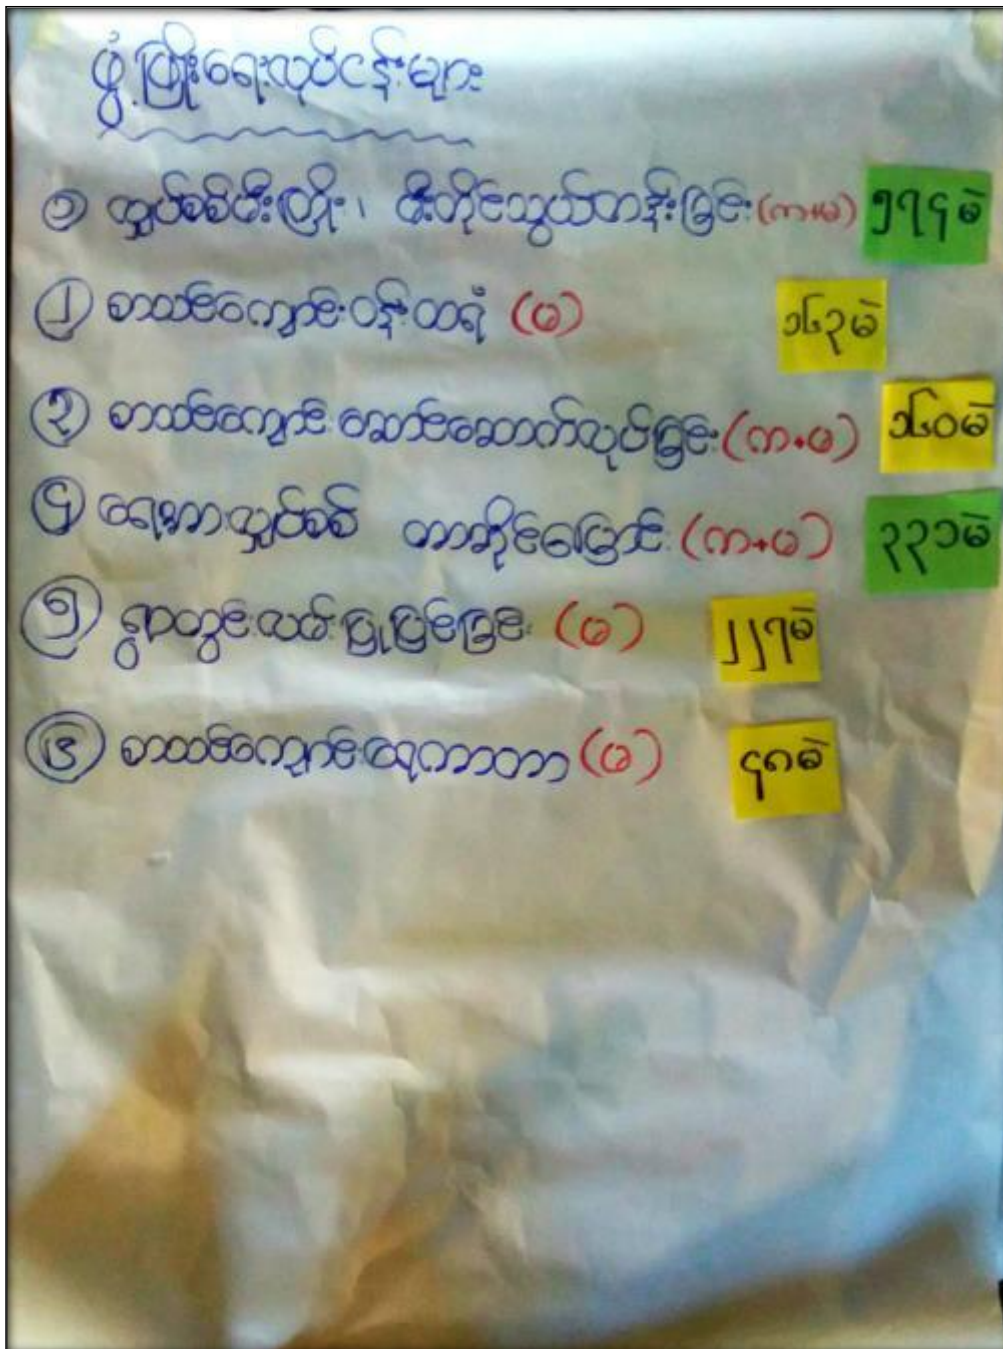 ဖွံ့ဖြိုးရေးလုပ်ငန်းများ
၁ လျှပ်စစ်မီးကြိုး၊ မီးတိုင်သွယ်တန်းခြင်း (က+မ) ၅၇၄ မဲ
၂ စာသင်ကျောင်းဝန်းထရံ (မ) ၁၆၃ မဲ
၃ စာသင်ကျောင်း ဆောင်ဆောက်လုပ်ခြင်း (က+မ) ၁၆၀ မဲ
၄ ရေအားလျှပ်စစ် တာဘိုင်ပြောင်း (က+မ) ၃၃၁ မဲ
၅ ရွာတွင်းလမ်းပြုပြင်ခြင်း (မ) ၂၂၇ မဲ
၆ စာသင်ကျောင်း (မ) ၄၈ မဲ